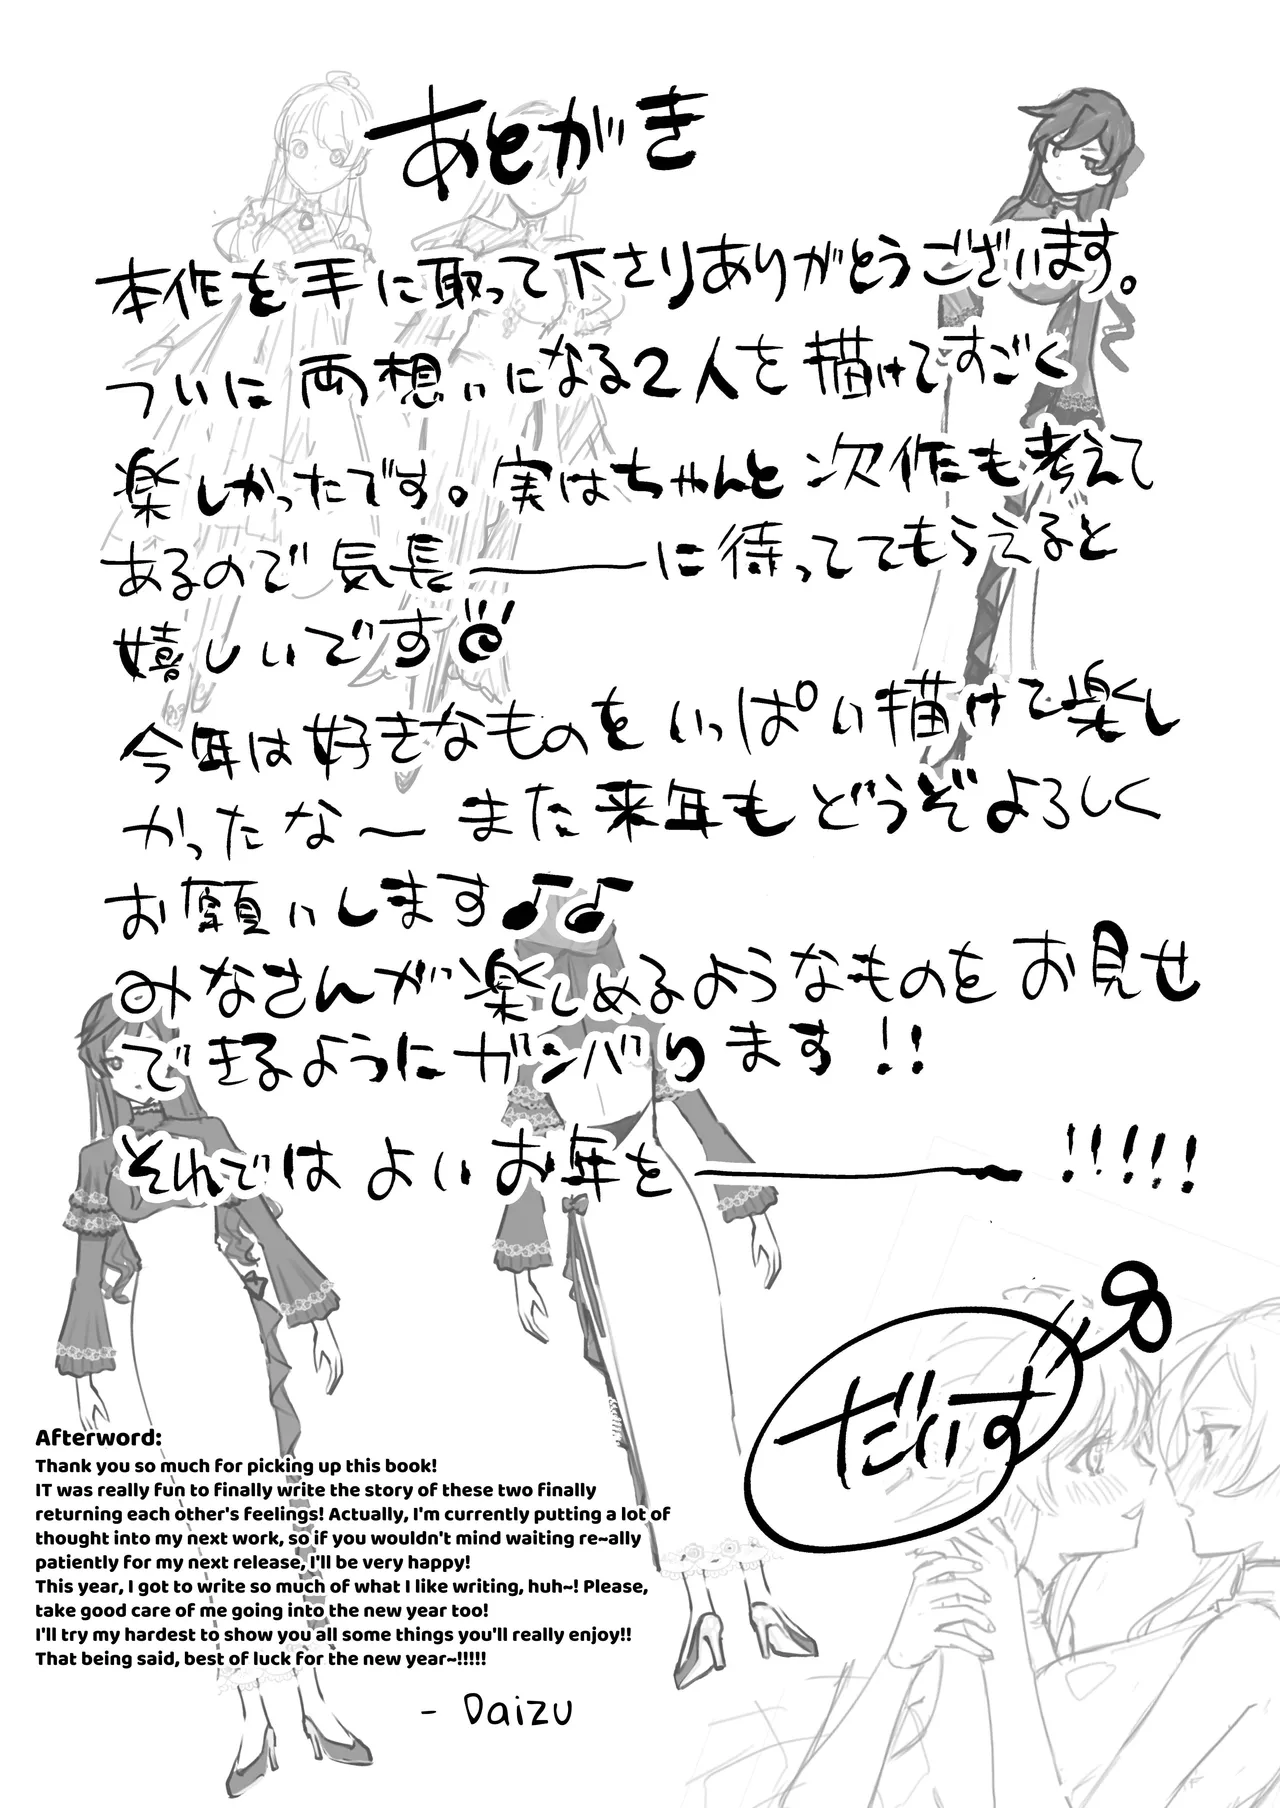 あとがき
本作を手に取って下さりありがとうございます。
ついに両想いになる2人を描けてすごく
楽しかったです。実はちゃんと次作も考えて
あるので気長――――に待っててもらえると
嬉しいです
今年は好きなものをいっぱい描けて楽し
かったな〜また来年もどうぞよろしく
お願いします♪♪
みなさんが楽しめるようなものをお見せ
できるようにガンバります!!
それではよいお年を――――――!!!!!
だいず
Afterword:
Thank you so much for picking up this book!
IT was really fun to finally write the story of these two finally
returning each other's feelings! Actually, I'm currently putting a lot of
thought into my next work, so if you wouldn't mind waiting re~ally
patiently for my next release, I'll be very happy!
This year, I got to write so much of what I like writing, huh~! Please,
take good care of me going into the new year too!
I'll try my hardest to show you all some things you'll really enjoy!!
That being said, best of luck for the new year~!!!!!
- Daizu